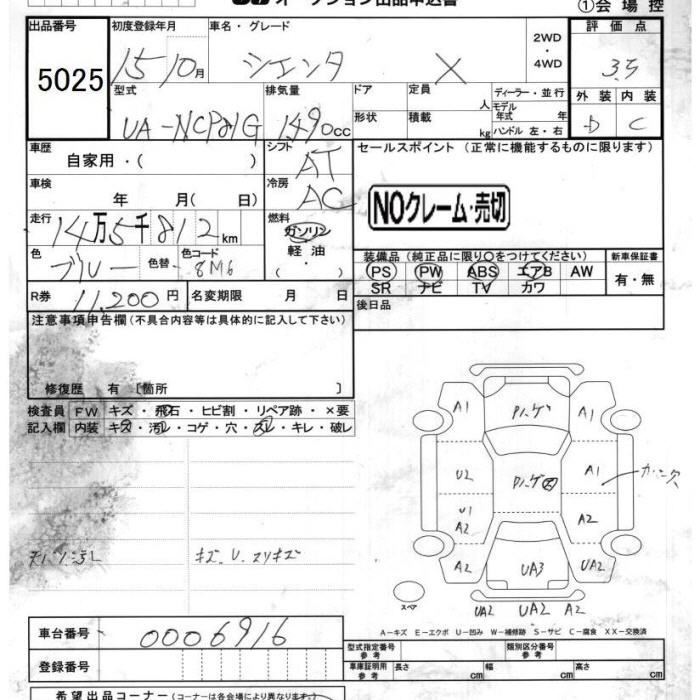 オークション出品申込書
①会場控
出品番号
5025
初度登録年月 車名・グレード
15 10月 シエンタ X
2WD
・
4WD
評価点
3.5
外装 内装
D C
型式 排気量 ドア 定員 人
UA-NCP81G 1490cc
形状 積載 kg
ディーラー・並行
モデル年式 年
ハンドル 左・右
車歴
自家用・( )
シフト
AT
車検
年 月( 日)
冷房
AC
走行
14万5千812km
燃料
ガソリン
軽油・
( )
色 色替 色コード
ブルー 8M6
R券 11,200円 名変期限 月 日
セールスポイント (正常に機能するものに限ります)
NOクレーム・売切
装備品(純正品に限り○をつけてください)
PS PW ABS エアB AW
SR ナビ TV カワ
新車保証書
有・無
後日品
注意事項申告欄(不具合内容等は具体的に記入して下さい)
修復歴 有[箇所 ]
検査員 FW キズ・飛石・ヒビ割・リペア跡・×要
記入欄 内装 キズ・汚レ・コゲ・穴・スレ・キレ・破レ
キズ、U、スリキズ
A1 Pハゲ A1
U2 Pハゲ A1
U1
A2 A2
A2 UA3 UA2
UA2 UA2 A2
スペア
A-キズ E-エクボ U-凹み W-補修跡 S-サビ C-腐食 XX-交換済
車台番号 0006916
登録番号
型式指定番号 参考 類別区分番号 参考
車庫証明用 参考 長さ cm 幅 cm 高さ cm
希望出品コーナー(コーナーは各会場により異なります。)